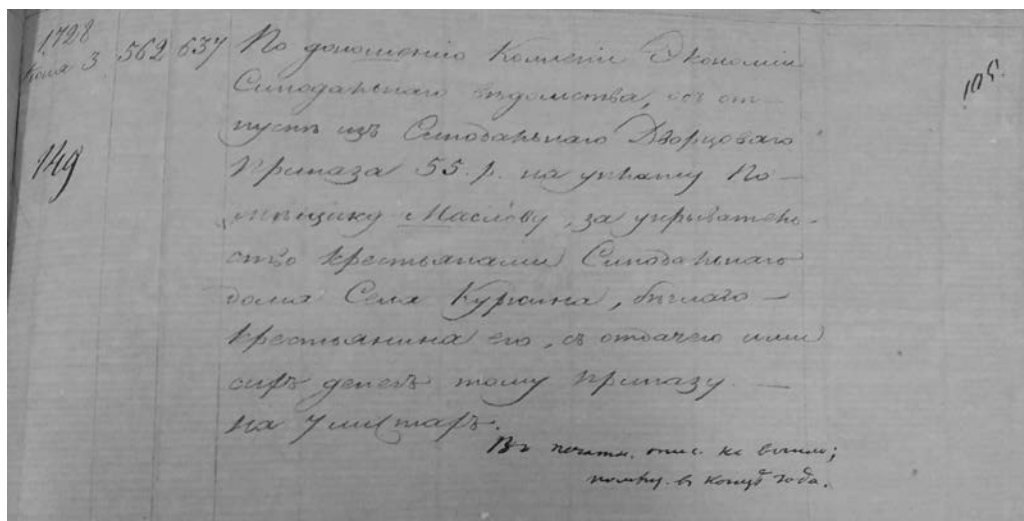 1728
Юня 3 562 637 По доношенію Коллегіи Экономіи
Синодальнаго вѣдомства, объ от-
пускѣ изъ Синодальнаго Дворцоваго
Приказа 55. р. на уплату По-
мѣщику Маслову, за укрыватель-
ство крестьянами Синодальнаго
дома Села Куркина, бѣглаго
крестьянина его, съ отдачею ими
сихъ денегъ тому приказу.
на 7 листахъ.
149
105.
Въ печатн. опис. не вошло;
въ концѣ года.